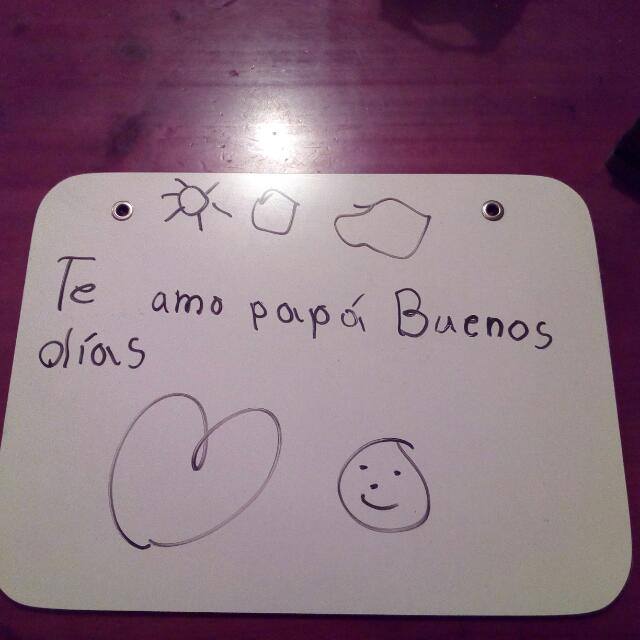 Te amo papá Buenos
días